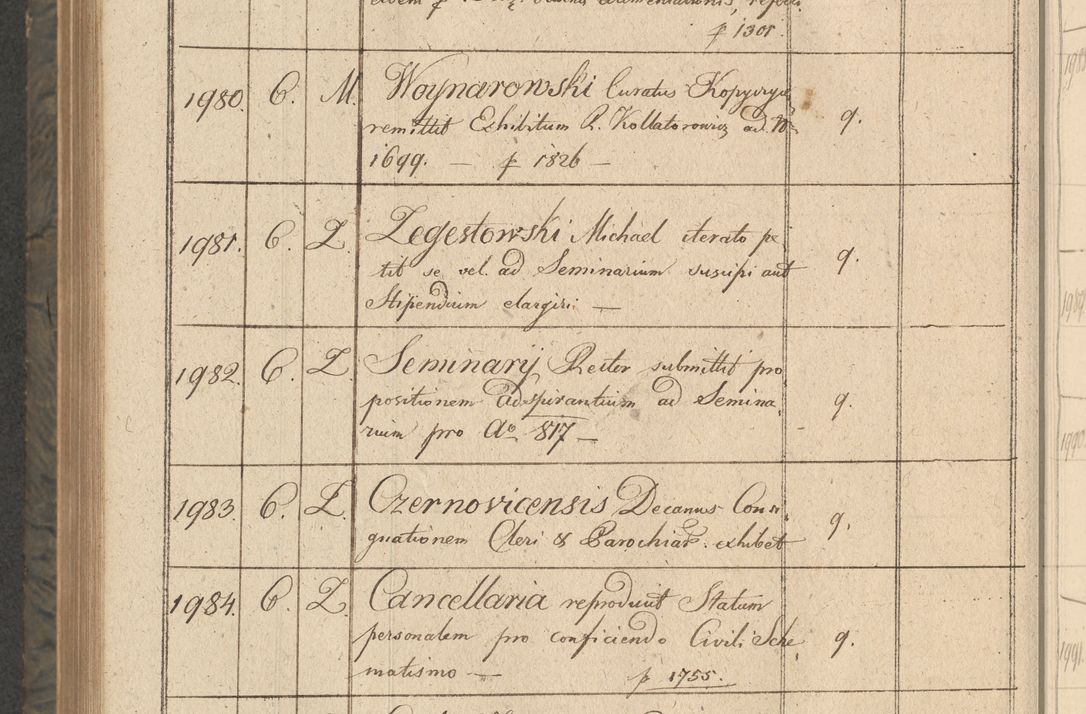 p 1301.
1980. C. M. Woynarowski Curatus Kopyczyn,
remittit Exhibitum R. Kollatorowicz ad N 9.
1699. — p 1826 —
1981. C. Z. Zegestowski Michael iterato pe,
tit se vel. ad Seminarium suscipi aut 9.
Stipendium elargiri —
1982. C. Z. Seminarij Rector submittit pro,
positionem adspirantium ad Semina, 9.
rium pro Ao 817 —
1983. C. Z. Czernovicensis Decanus Consi,
gnationem Cleri & Parochiar. exhibet 9.
1984. C. Z. Cancellaria reproducit Statum
personalem pro conficiendo Civili Sche, 9.
matismo — p 1755.